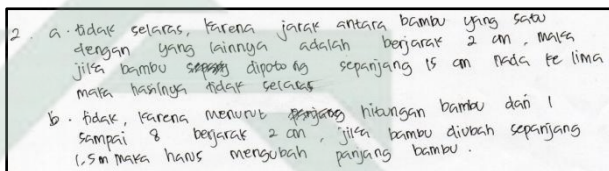 2. a. tidak selaras, karena jarak antara bambu yang satu
dengan yang lainnya adalah berjarak 2 cm, maka
jika bambu dipotong sepanjang 15 cm nada ke lima
maka hasilnya tidak selaras
b. tidak, karena menurut panjang hitungan bambu dari 1
sampai 8 berjarak 2 cm, jika bambu diubah sepanjang
1,5 m maka harus mengubah panjang bambu.